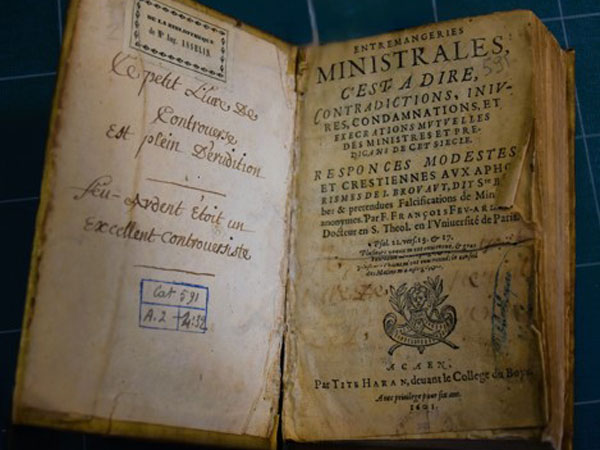 DE LA BIBLIOTHEQUE
de Mr Aug. ASSELIN.
Ce petit Livre De
Controverse
Est plein D'erudition
feu-Ardent Étoit un
Excellent Controversiste
Cat 591
A.2
ENTREMANGERIES
MINISTRALES,
C'EST A DIRE,
591
CONTRADICTIONS, INIV-
RES, CONDAMNATIONS, ET
EXECRATIONS MVTVELLES
DES MINISTRES ET PRE-
DICANS DE CET SIECLE.
RESPONCES MODESTES
ET CRESTIENNES AVX APHO-
RISMES DE I. BROVAVT, DIT Ste
bes & pretendues Falsifications de Min
anonymes. Par F. FRANÇOIS FEV-AR
Docteur en S. Theol. en l'Université de Paris
Psal. 21. vers. 15. & 17.
A CAEN,
Par TITE HARAN, deuant le College du Boys.
Auec priuilege pour six ans.
1601.